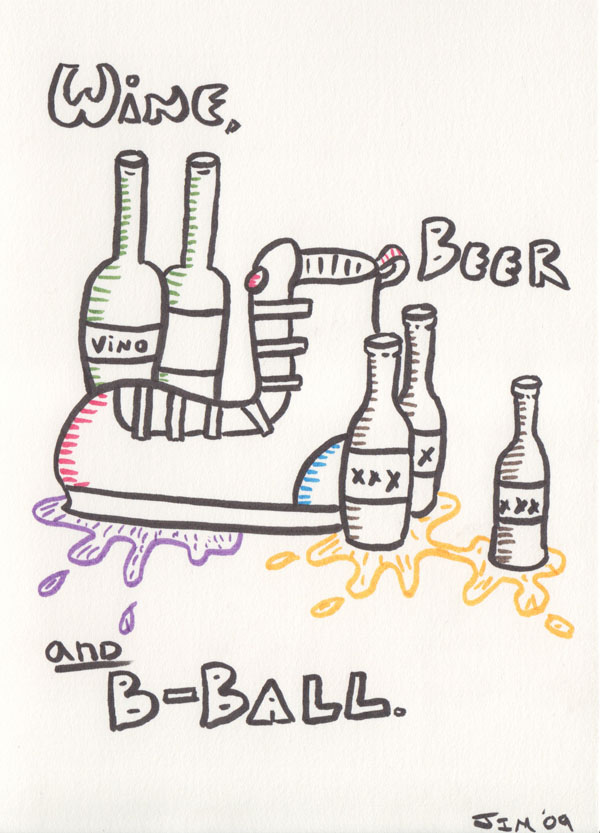 Wine,
Beer
Vino
xxx
x
xxx
and
B-Ball.
Jim '09